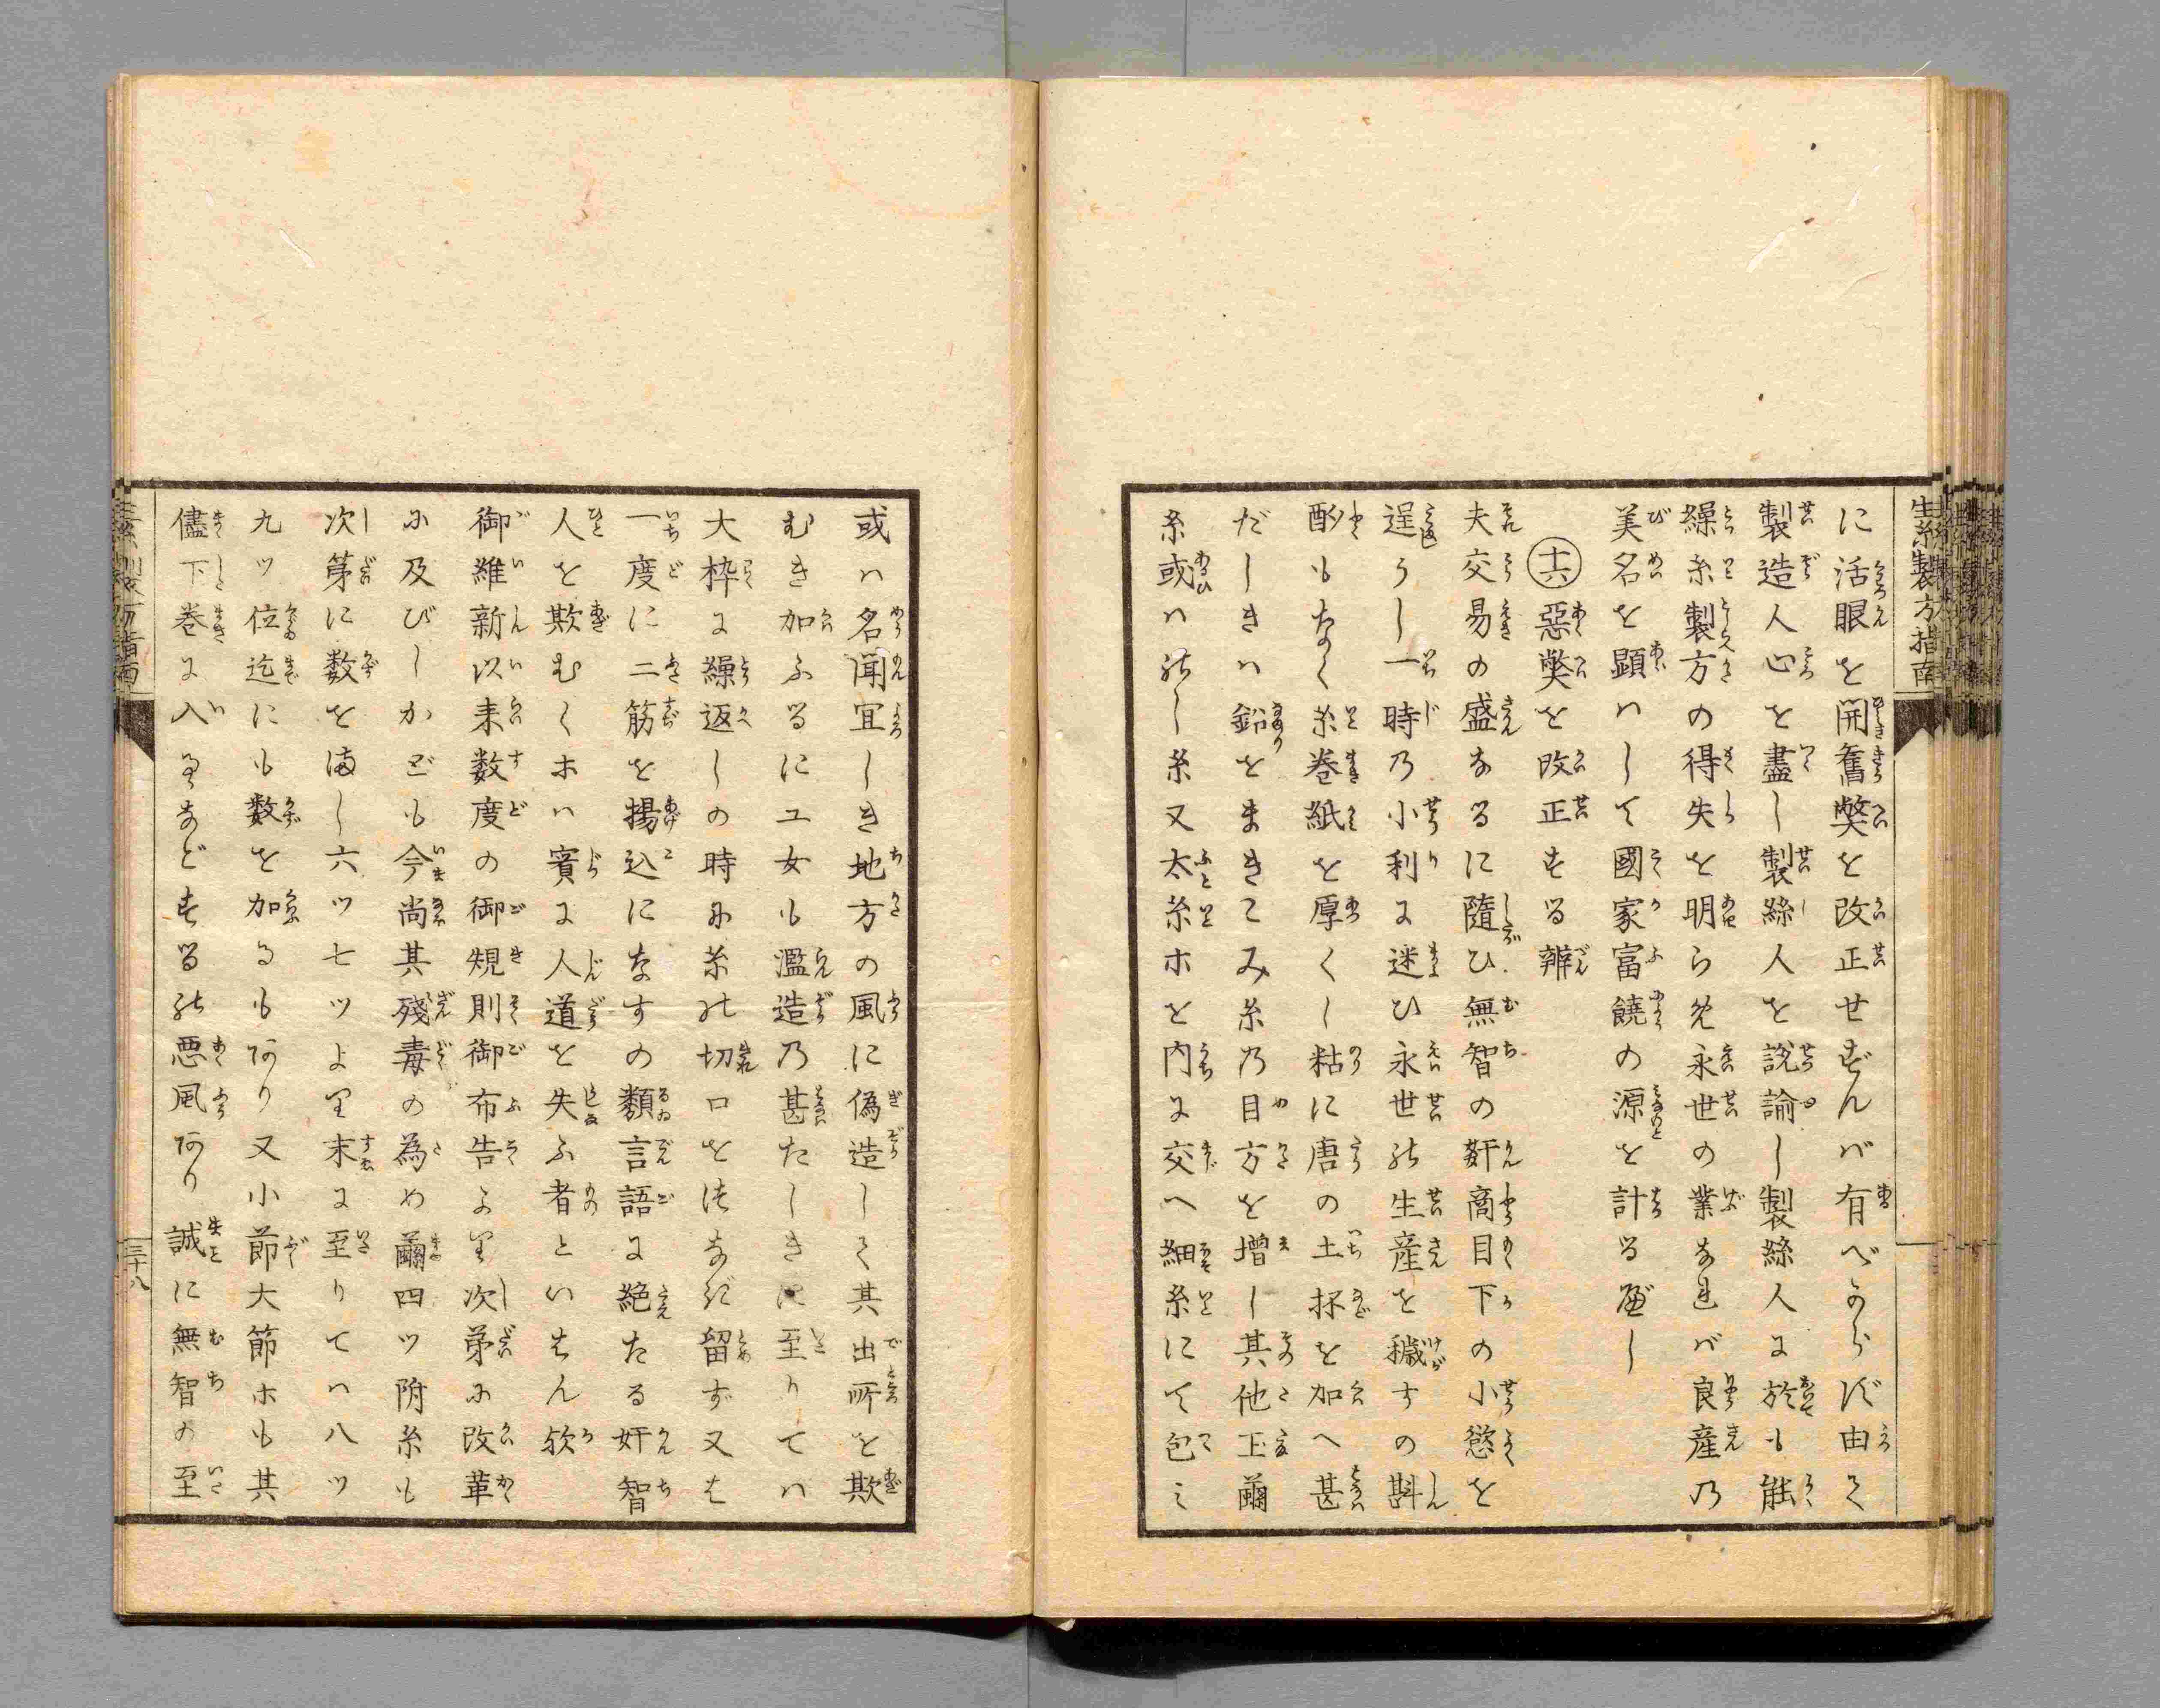 生糸製方指南
に活眼を開き舊弊を改正せずんば有べからず由て
製造人心を盡し製絲人を説諭し製絲人に於も能
繰糸製方の得失を明らめ永世の業なれば良産の
美名を顕ハして國家富饒の源を計る可し
十六 惡弊を改正する辨
夫交易の盛なるに隨ひ無智の奸商目下の小慾を
逞うし一時の小利に迷ひ永世の生産を穢すの斟
酌もなく糸巻紙を厚くし粘に唐の土抔を加へ甚
だしきハ鉛をまきこみ糸の目方を増し其他玉繭
糸或ハのし糸又太糸ホを内に交へ細糸にて包ミ
或ハ名聞宜しき地方の風に偽造して其出所を欺
むき加ふるに工女も濫造の甚たしきに至りてハ
大枠に繰返しの時に糸の切口をつなぎ留ず又は
一度に二筋を揚込になすの類言語に絶たる奸智
人を欺むくホハ實に人道を失ふ者といはん欤
御維新以来数度の御規則御布告より次第に改革
に及びしかども今尚其殘毒の為め繭四ツ附糸も
次第に数を満し六ツ七ツより末に至りてハ八ツ
九ツ位迄にも数を加るもあり又小節大節ホも其
儘下巻に入るなどする的悪風あり誠に無智の至
三十八